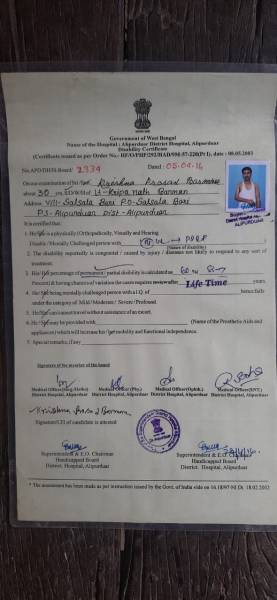 Government of West Bengal
Name of the Hospital : Alipurduar District Hospital, Alipurduar
Disability Certificate
(Certificate issued as per Order No.- HF/O/PHP/292/HAD/998-57-220(Pt), date - 08.05.2003
No.APD/DH/H-Board/ 2334 Dated : 05.04.16
On examination of Sri/Smt. Krishna Prosad Barman
about 30 yrs Lt- Kripa nath Barman
Address Vill- Salsala Bari P.O- Salsala Bari
P.S- Alipurduar Dist- Alipurduar
It is certified that :
1. He/She is physically (Orthopedically, Visually and Hearing
Disable/Mentally Challenged person with PPRP
(Name of disability)
2. The disability reportedly is congenital / caused by injury / disease not likely to respond to any sort of
treatment.
3. His/Her percentage of permanent / partial disability is calculated as 60%
Percent & having chance of variation the case requires review after Life Time years.
4. He/She being mentally challenged person with I.Q of hence falls
under the category of Mild / Moderate / Severe / Profound.
5. He/She can/cannot travel without assistance of an escort.
6. He/She may be provided with (Name of the Prosthetic Aids and
appliances) which will increase his/her mobility and functional independence.
7. Special remarks, if any
Signature of the member of the board
Medical Officer(Phy.) Medical Officer(Ophth.) Medical Officer(ENT)
Krishna Prosad Barman
Signature/LTI of candidate is attested
Superintendent & E.O. Chairman
Handicapped Board
District Hospital, Alipurduar
Superintendent & E.O. Chairman
Handicapped Board
District Hospital, Alipurduar
* The assessment has been made as per instruction issued by the Govt. of India vide on 16.18/97-NI Dt. 18.02.2002